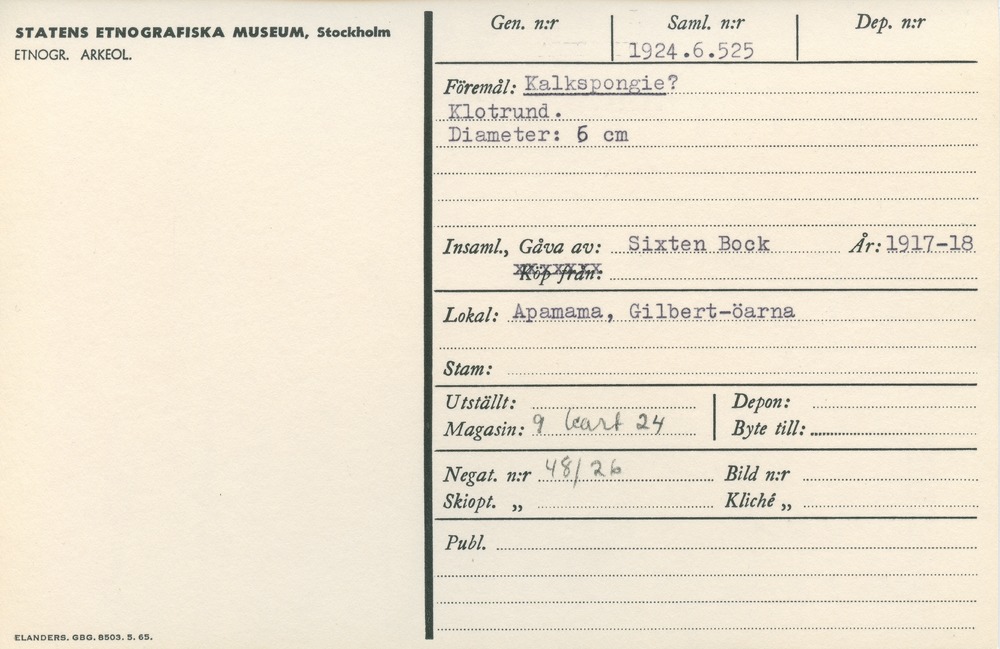 STATENS ETNOGRAFISKA MUSEUM, Stockholm
ETNOGR. ARKEOL.
Gen. n:r
Saml. n:r
Dep. n:r
1924.6.525
Föremål: Kalkspongie?
Klotrund.
Diameter: 6 cm
Insaml., Gåva av: Sixten Bock År: 1917-18
Köp från:
Lokal: Apamama, Gilbert-öarna
Stam:
Utställt:
Depon:
Magasin: 9 kart 24
Byte till:
Negat. n:r 48/26
Bild n:r
Skiopt. „
Kliché „
Publ.
ELANDERS. GBG. 8503. 5. 65.